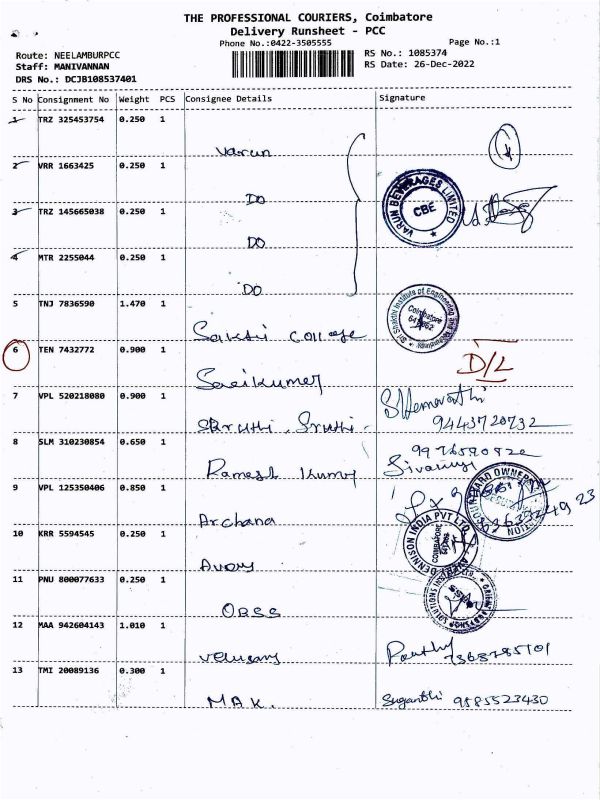 THE PROFESSIONAL COURIERS, Coimbatore
Delivery Runsheet - PCC
Phone No.:0422-3505555
Page No.:1
Route: NEELAMBURPCC
Staff: MANIVANNAN
DRS No.: DCJB108537401
RS No.: 1085374
RS Date: 26-Dec-2022
S No Consignment No Weight PCS Consignee Details Signature
1 TRZ 325453754 0.250 1
Varun
2 VRR 1663425 0.250 1
DO
VARUN BEVERAGES LIMITED
CBE
3 TRZ 145665038 0.250 1
DO
4 MTR 2255044 0.250 1
DO
5 TNJ 7836590 1.470 1
Sakthi College
Sri Shakthi Institute of Engineering and Technology
Coimbatore
641 062
6 TEN 7432772 0.900 1
Saikumar
D/L
7 VPL 520218080 0.900 1
Shruthi. Sruthi.
9443720732
8 SLM 310230854 0.650 1
Ramesh Kumar
9 VPL 125350406 0.850 1
Archana
10 KRR 5594545 0.250 1
Avery
DENNISON INDIA PVT LTD
COIMBATORE
11 PNU 800077633 0.250 1
OBSS
12 MAA 942604143 1.010 1
Velusamy
13 TMI 20089136 0.300 1
MAK.
Suganthi 9585523430